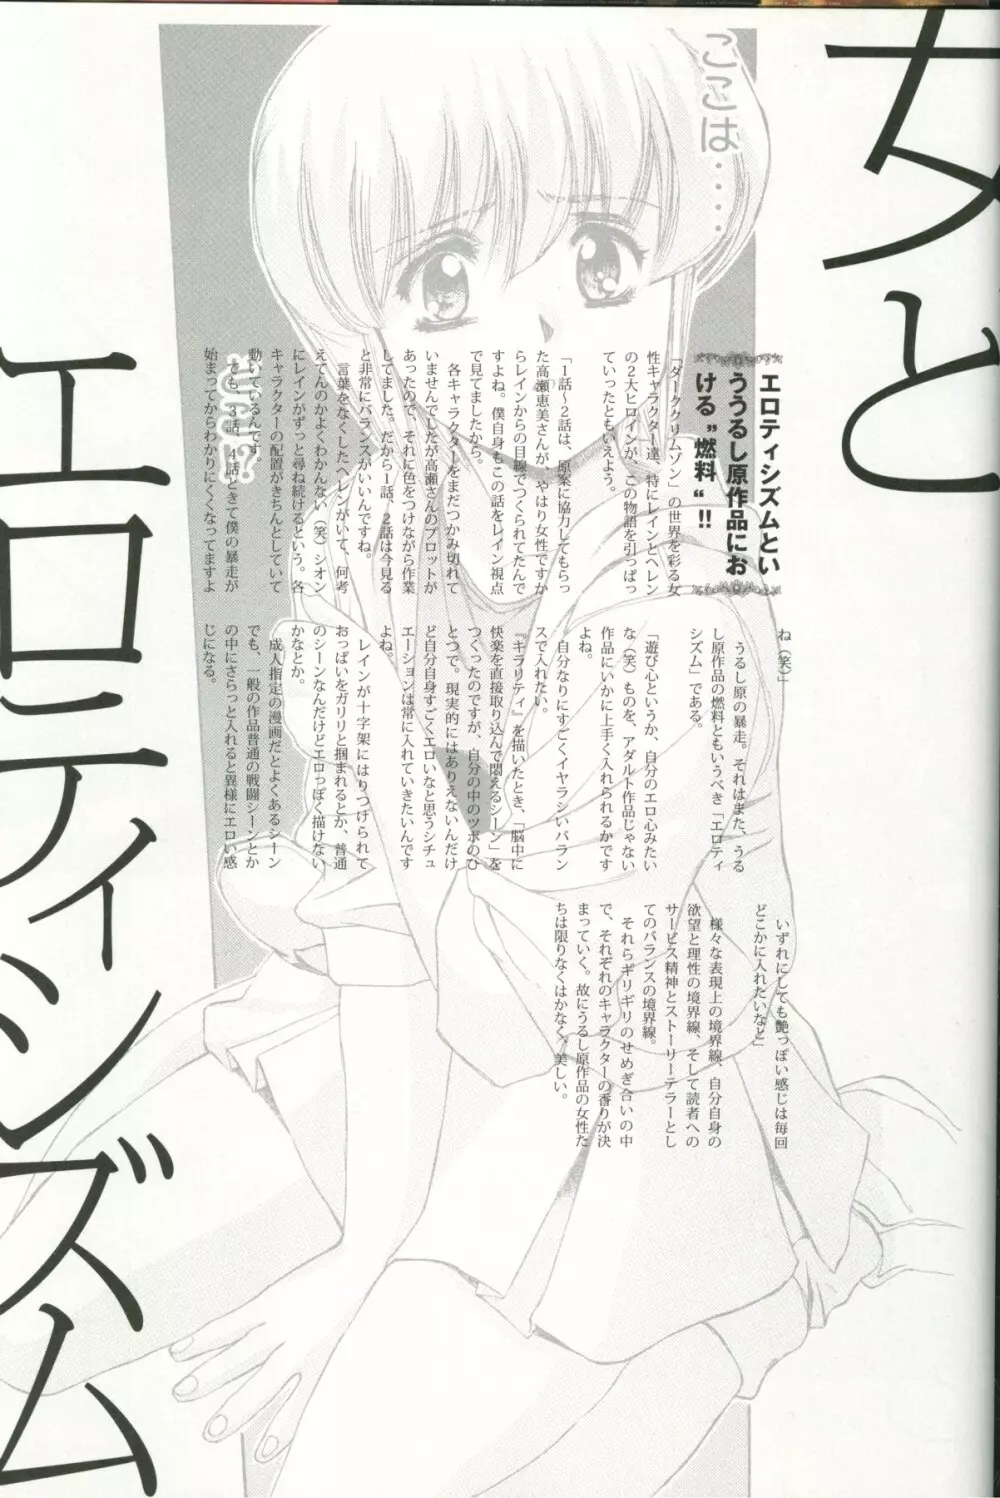 女と
エロティシズム
ここは……
エロティシズムとい
ううるし原作品にお
ける〝燃料〟!!
「ダーククリムゾン」の世界を彩る女
性キャラクター達、特にレインとヘレン
の2大ヒロインが、この物語を引っぱっ
ていったともいえよう。
「1話〜2話は、原案に協力してもらっ
た高瀬恵美さんが、やはり女性ですか
らレインからの目線でつくられてたんで
すよね。僕自身もこの話をレイン視点
で見てましたから。
各キャラクターをまだつかみ切れて
いませんでしたが高瀬さんのプロットが
あったので、それに色をつけながら作業
してました。だから1話、2話は今見る
と非常にバランスがいいんですね。
言葉をなくしたヘレンがいて、何考
えてんのかよくわかんない(笑)シオン
にレインがずっと尋ね続けるという。各
キャラクターの配置がきちんとしていて
動いているんです。
でも、3話、4話ときて僕の暴走が
始まってからわかりにくくなってますよ
ね(笑)」
うるし原の暴走。それはまた、うる
し原作品の燃料ともいうべき「エロティ
シズム」である。
「遊び心というか、自分のエロ心みたい
な(笑)ものを、アダルト作品じゃない
作品にいかに上手く入れられるかです
よね。
自分なりにすごくイヤラシいバラン
スで入れたい。
『キラリティ』を描いたとき、「脳中に
快楽を直接取り込んで悶えるシーン」を
つくったのですが、自分の中のツボのひ
とつで。現実的にはありえないんだけ
ど自分自身すごくエロいなと思うシチュ
エーションは常に入れていきたいんです
よね。
レインが十字架にはりつけられて
おっぱいをガリリと掴まれるとか、普通
のシーンなんだけどエロっぽく描けない
かなとか。
成人指定の漫画だとよくあるシーン
でも、一般の作品普通の戦闘シーンとか
の中にさらっと入れると異様にエロい感
じになる。
いずれにしても艶っぽい感じは毎回
どこかに入れたいなと」
様々な表現上の境界線、自分自身の
欲望と理性の境界線、そして読者への
サービス精神とストーリーテラーとし
てのバランスの境界線。
それらギリギリのせめぎ合いの中
で、それぞれのキャラクターの香りが決
まっていく。故にうるし原作品の女性た
ちは限りなくはかなく、美しい。